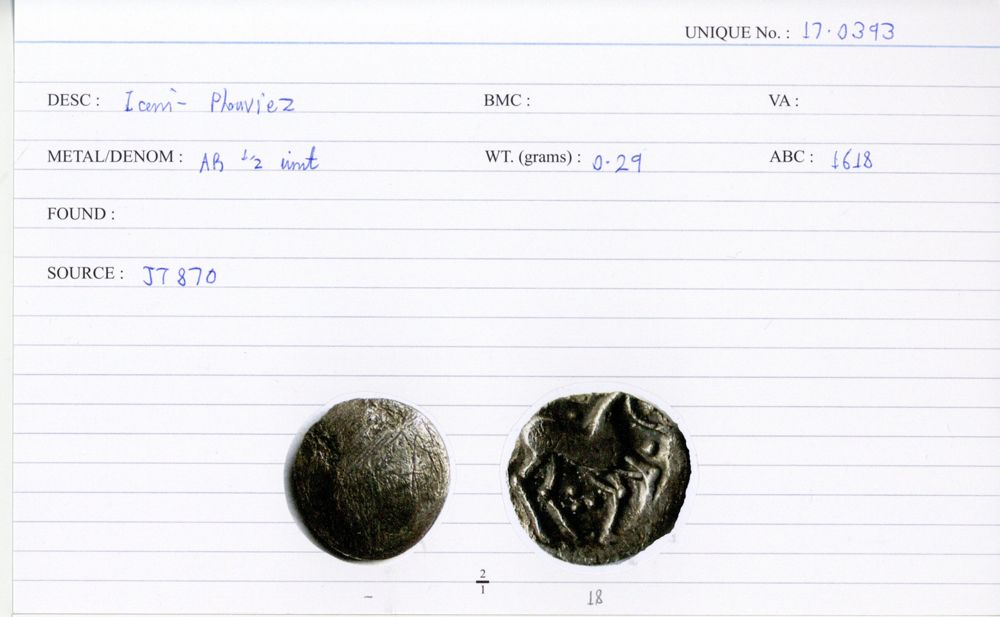 UNIQUE No. : 17.0393
DESC : Iceni - Plouviez BMC : VA :
METAL/DENOM : AR 1/2 unit WT. (grams) : 0.29 ABC : 1618
FOUND :
SOURCE : JT 870
2/1
- 18